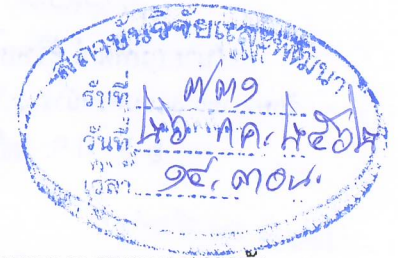 สถาบันวิจัยและพัฒนา
รับที่ ๗๓๑
วันที่ ๒๖ กค. ๒๕๖๒
เวลา ๑๔.๓๐น.